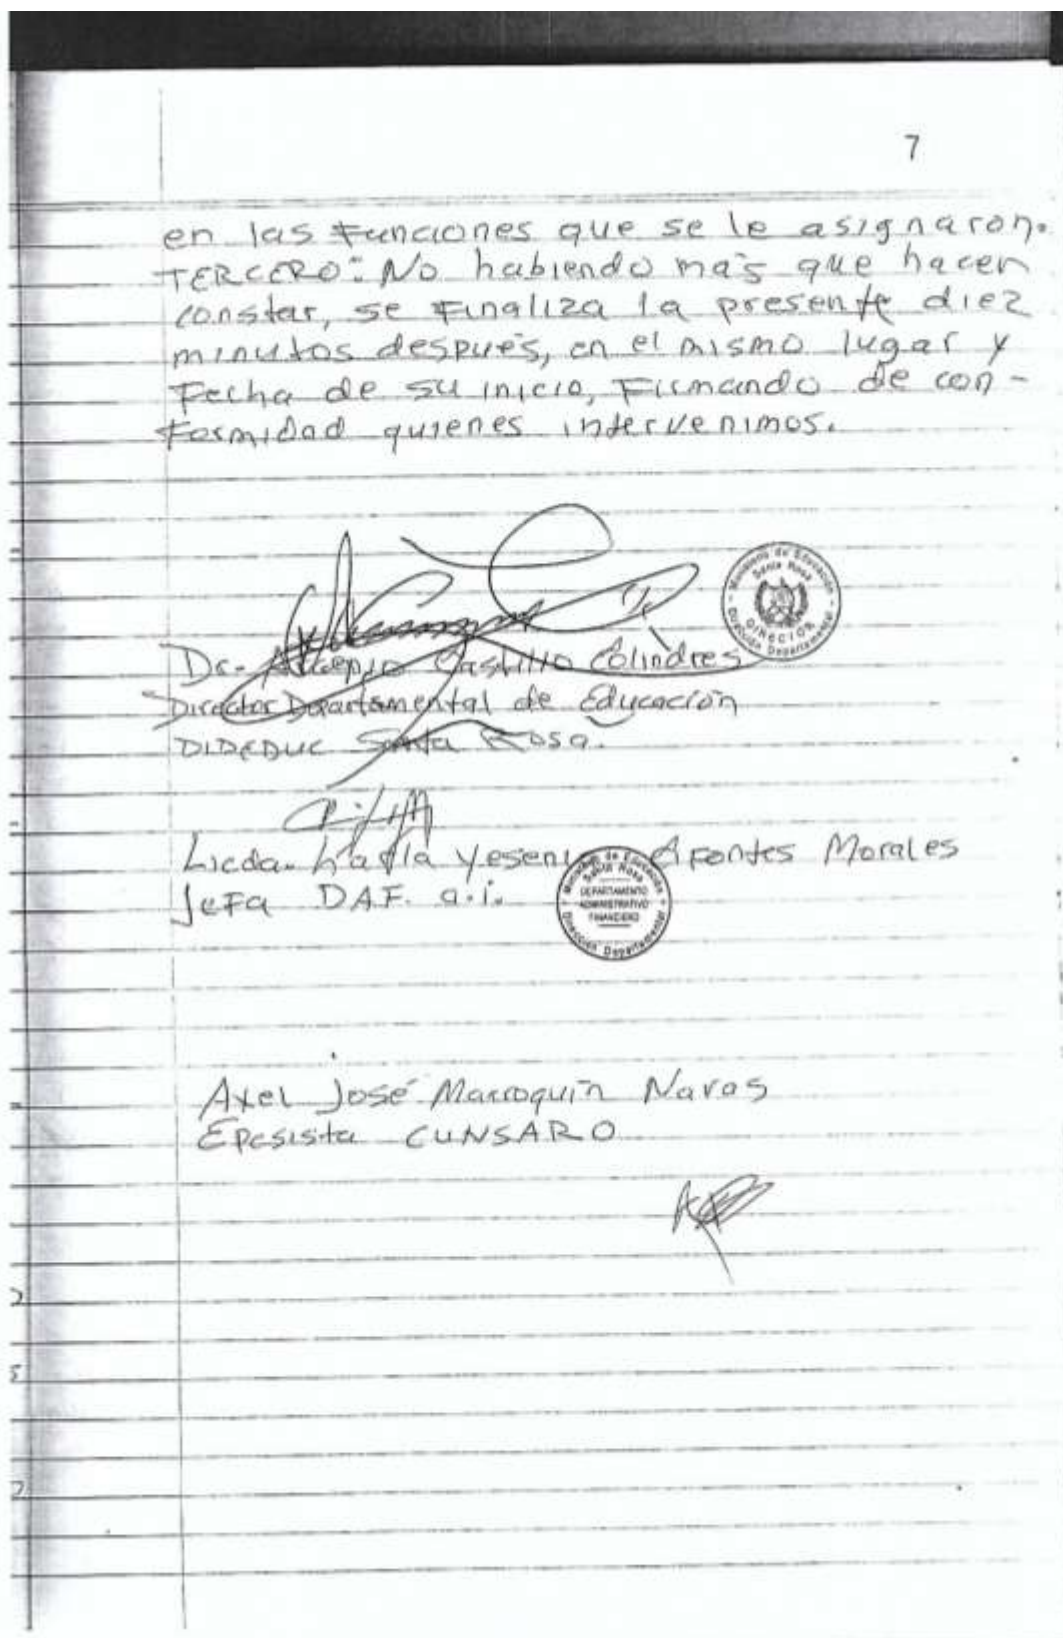 7
en las funciones que se le asignaron.
TERCERO: No habiendo más que hacer
constar, se finaliza la presente diez
minutos después, en el mismo lugar y
fecha de su inicio, firmando de con-
formidad quienes intervenimos.
Ministerio de Educación
Santa Rosa
DIRECCIÓN
Dirección Departamental
Dr. Castillo Colindres
Director Departamental de Educación
DIDEDUC Santa Rosa.
Licda. Karla Yesenia Fontes Morales
Jefa D.A.F. a.i.
Ministerio de Educación
Santa Rosa
DEPARTAMENTO
ADMINISTRATIVO
FINANCIERO
Dirección Departamental
Axel José Marroquín Navas
Epesista CUNSARO